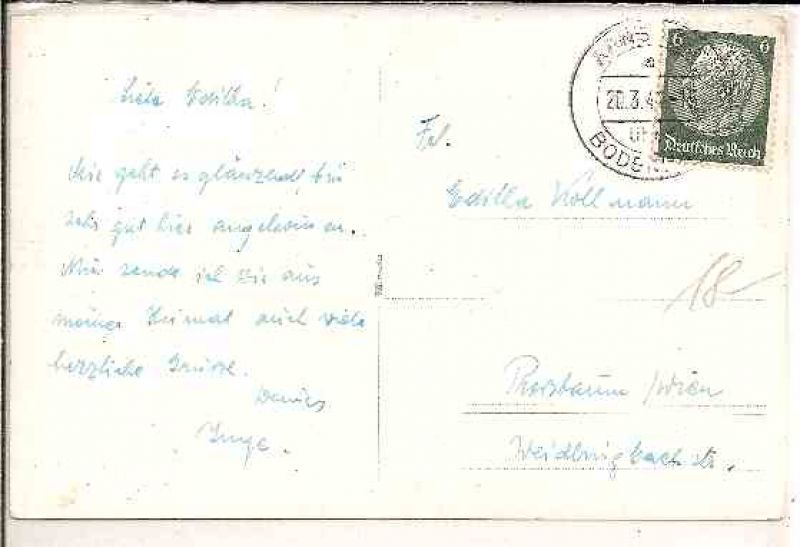 Liebe Ediltha!
Mir geht es glänzend, bin
sehr gut hier angekommen.
Nun sende ich Dir aus
meiner Heimat auch viele
herzliche Grüsse.
Inge.
Frl.
Ediltha Kollmann
18
/Wien
Weidlingbachstr.
6 6
Deutsches Reich
20.3.4
BODEN